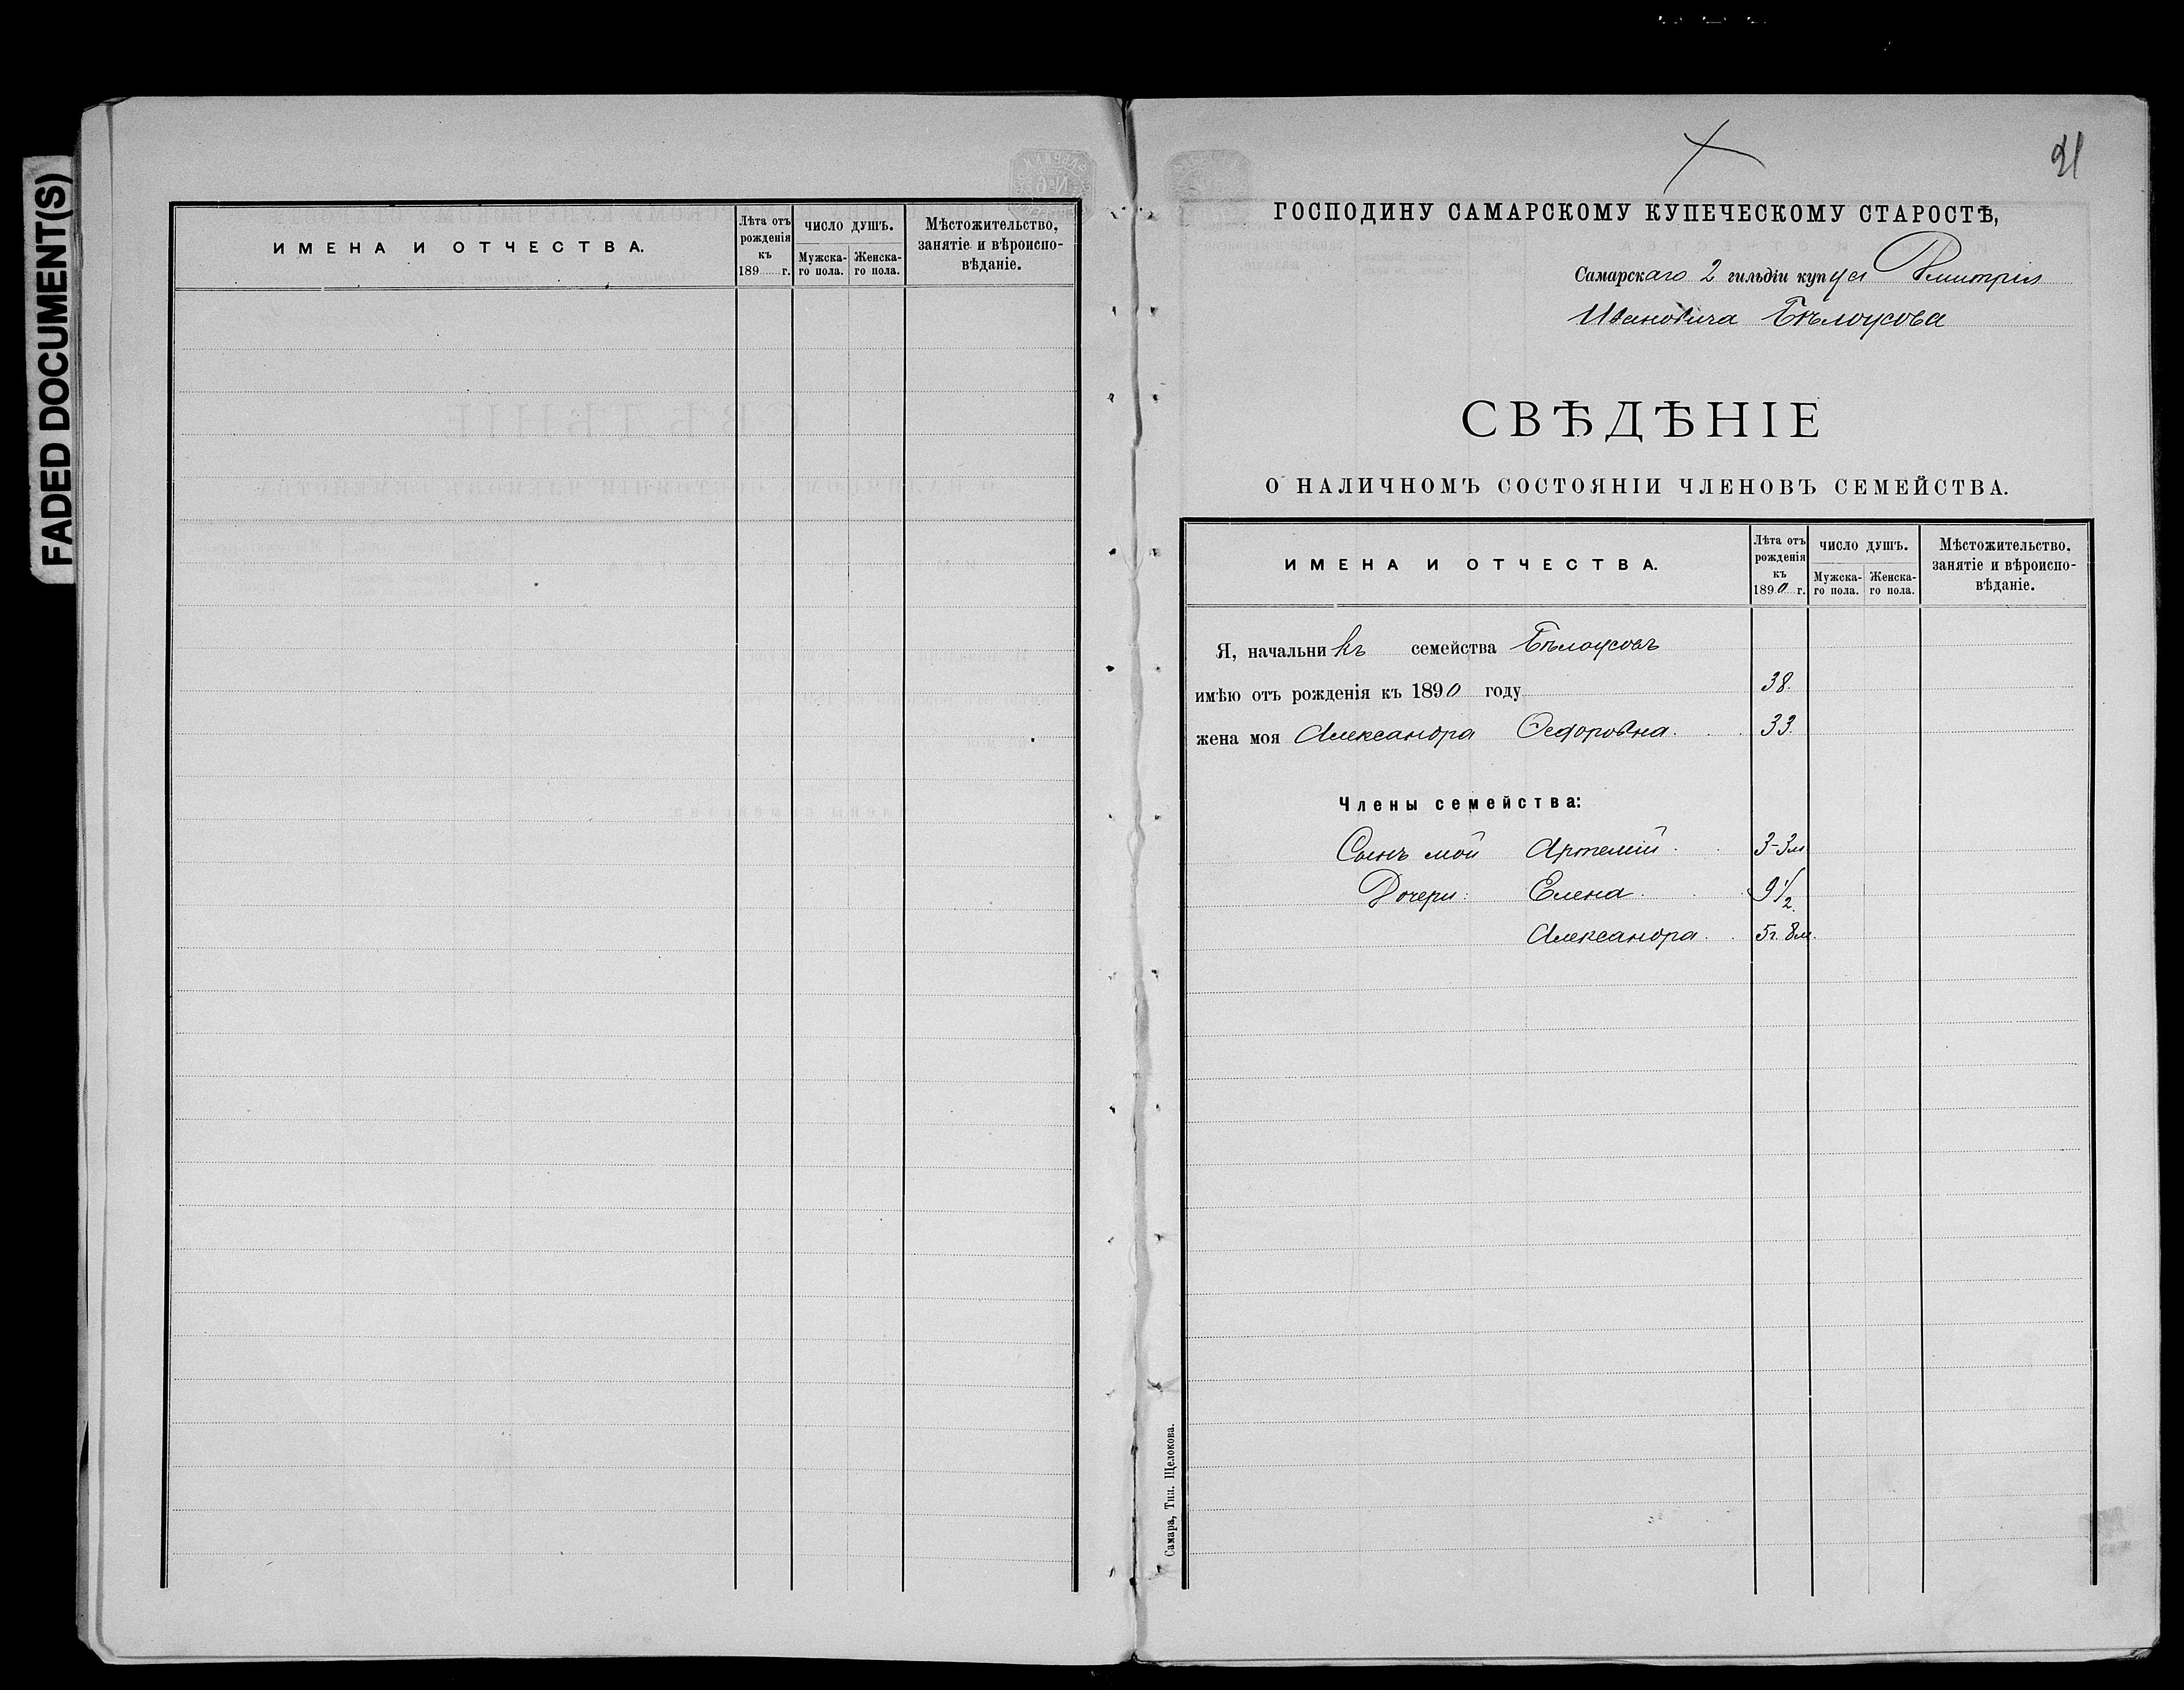 FADED DOCUMENT(S)
ИМЕНА И ОТЧЕСТВА.
Лѣта отъ рожденія къ 189 г.
ЧИСЛО ДУШЪ.
Мужска- го пола.
Женска- го пола.
Мѣстожительство, занятіе и вѣроиспо- вѣданіе.
21
ГОСПОДИНУ САМАРСКОМУ КУПЕЧЕСКОМУ СТАРОСТѢ,
Самарскаго 2 гильдіи купца Дмитрія
Ивановича Бѣлоусова
СВѢДѢНІЕ
О НАЛИЧНОМЪ СОСТОЯНІИ ЧЛЕНОВЪ СЕМЕЙСТВА.
ИМЕНА И ОТЧЕСТВА.
Лѣта отъ рожденія къ 1890 г.
ЧИСЛО ДУШЪ.
Мужска- го пола.
Женска- го пола.
Мѣстожительство, занятіе и вѣроиспо- вѣданіе.
Я, начальникъ семейства Бѣлоусовъ
имѣю отъ рожденія къ 1890 году 38.
жена моя Александра Ѳедоровна. 33.
Члены семейства:
Сынъ мой Артемій. 3-3м
Дочери: Елена. 9 1/2.
Александра. 5г. 8м.
Самара, Тип. Щелокова.